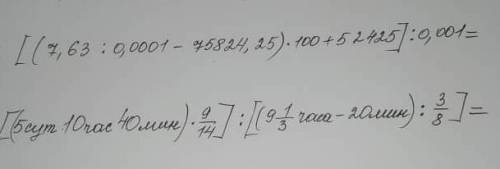 [(7,63 : 0,0001 - 75824,25) · 100 + 52425] : 0,001 =
[(5сут 10час 40мин) · 9/14] : [(9 1/3 часа - 20мин) : 3/8] =